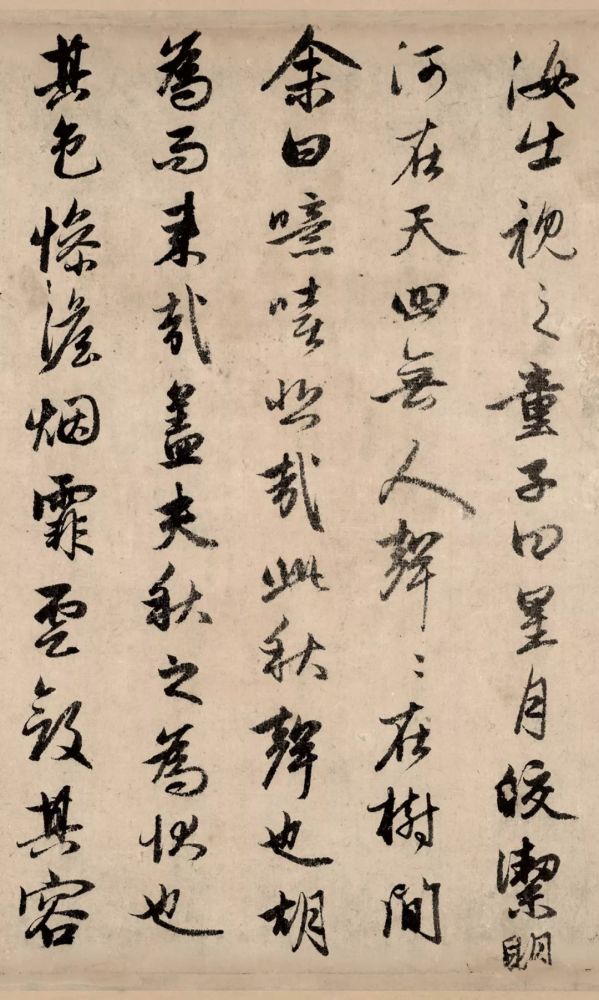 汝出視之童子曰星月皎潔明
河在天四無人聲〻在樹間
余曰噫嘻悲哉此秋聲也胡
為而来哉盖夫秋之為状也
其色慘澹烟霏雲斂其容